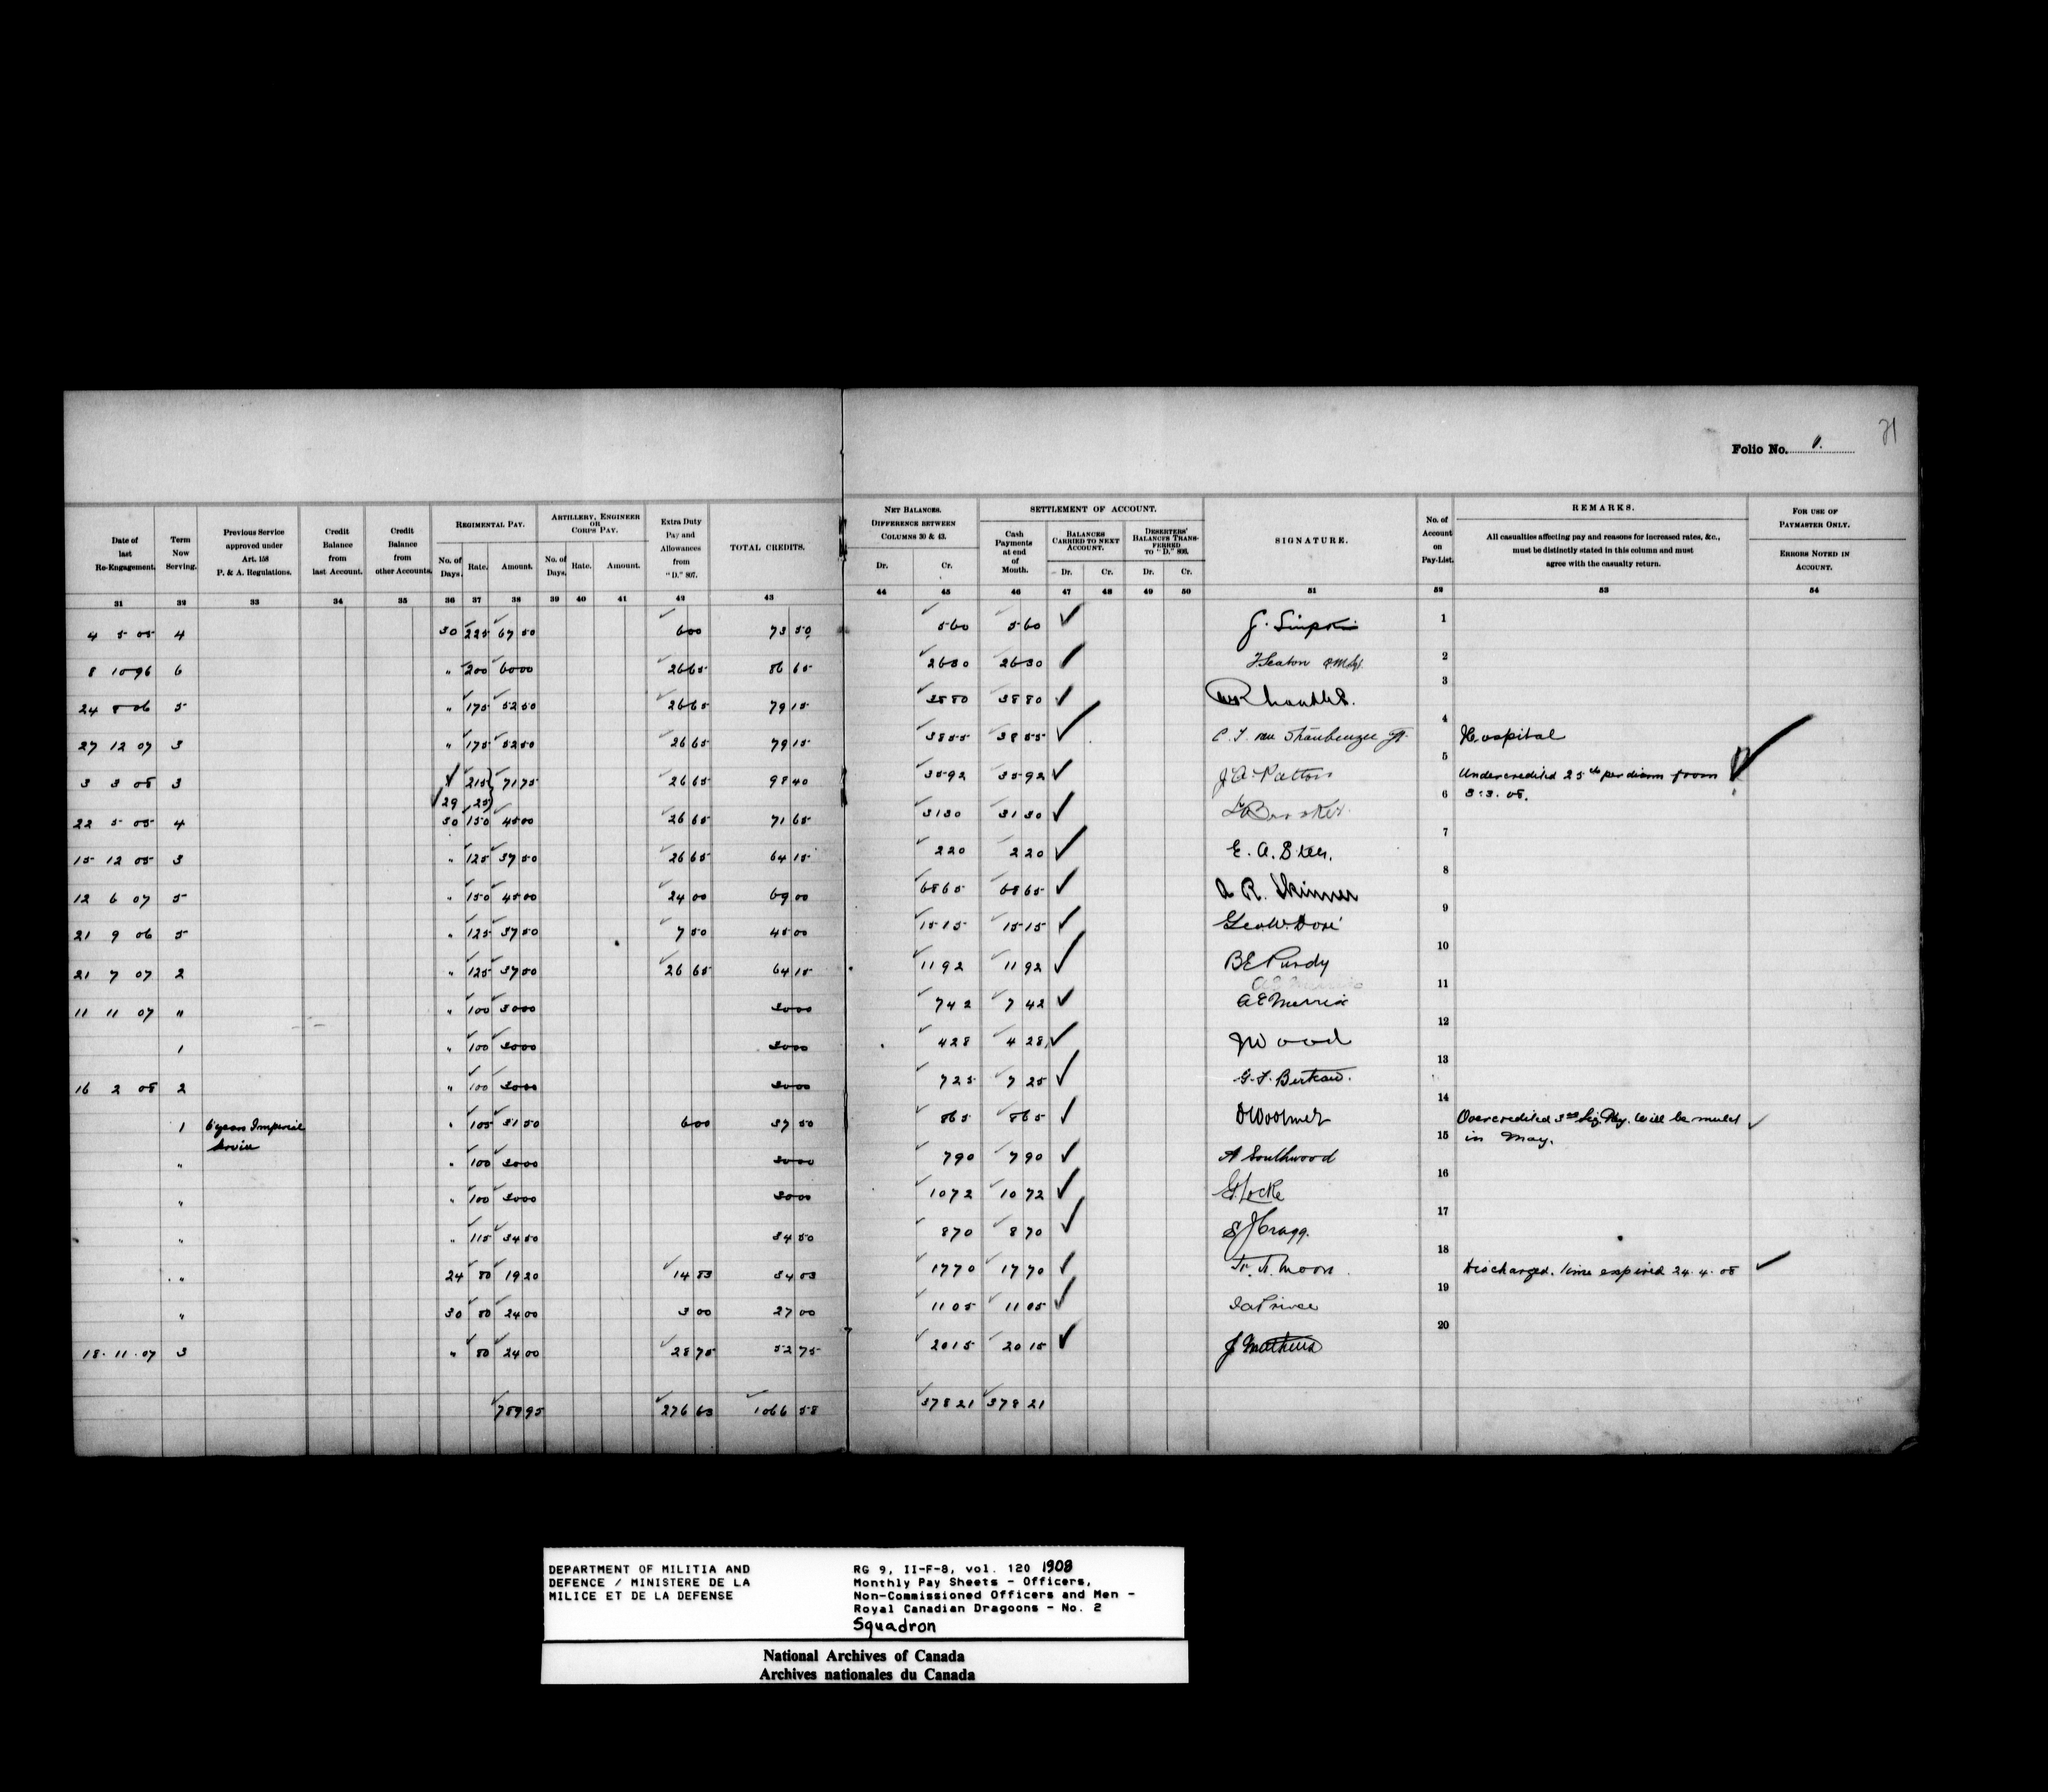 71
Folio No. 1.
Date of last Re-Engagement.
Term Now Serving.
Previous Service approved under Art. 158 P. & A. Regulations.
Credit Balance from last Account.
Credit Balance from other Accounts.
REGIMENTAL PAY.
No. of Days. Rate. Amount.
ARTILLERY, ENGINEER OR CORPS PAY.
No. of Days. Rate. Amount.
Extra Duty Pay and Allowances from "D." 807.
TOTAL CREDITS.
NET BALANCES. DIFFERENCE BETWEEN COLUMNS 30 & 43.
Dr. Cr.
SETTLEMENT OF ACCOUNT.
Cash Payments at end of Month.
BALANCES CARRIED TO NEXT ACCOUNT.
Dr. Cr.
DESERTERS' BALANCES TRANSFERRED TO "D." 808.
Dr. Cr.
SIGNATURE.
No. of Account on Pay-List.
REMARKS.
All casualties affecting pay and reasons for increased rates, &c., must be distinctly stated in this column and must agree with the casualty return.
FOR USE OF PAYMASTER ONLY.
ERRORS NOTED IN ACCOUNT.
31 32 33 34 35 36 37 38 39 40 41 42 43 44 45 46 47 48 49 50 51 52 53 54
4 5 05 4 30 225 67 50 6 00 73 50 5 60 5 60 J. Simpkin 1
8 10 96 6 " 200 60 00 26 65 86 65 26 30 26 30 Seaton 2
24 8 06 5 " 175 52 50 26 65 79 15 38 80 38 80 3
27 12 07 3 " 175 52 50 26 65 79 15 38 55 38 55 C. T. van Straubenzee 4 Hospital
3 3 08 3 215 71 75 26 65 98 40 35 92 35 92 J. A. Patton 5 Undercredited 25 cts per diem from
29 25 3.3.08.
22 5 05 4 30 150 45 00 26 65 71 65 31 30 31 30 6
15 12 05 3 " 125 37 50 26 65 64 15 2 20 2 20 E. A. Steer. 7
12 6 07 5 " 150 45 00 24 00 69 00 68 65 68 65 A R. Skinner 8
21 9 06 5 " 125 37 50 7 50 45 00 15 15 15 15 Geo. W. Dore 9
21 7 07 2 " 125 37 50 26 65 64 15 11 92 11 92 B E Purdy 10
11 11 07 " " 100 30 00 30 00 7 42 7 42 A E Merrix 11
1 " 100 30 00 30 00 4 28 4 28 J Wood 12
16 2 08 2 " 100 30 00 30 00 7 25 7 25 13
1 6 years Imperial Service " 105 31 50 6 00 37 50 8 65 8 65 D Woolmer 14 Overcredited 3rd Sig. Pay. Will be muled
in May.
" " 100 30 00 30 00 7 90 7 90 A Southwood 15
" " 100 30 00 30 00 10 72 10 72 G Locke 16
" " 115 34 50 34 50 8 70 8 70 S J Cragg. 17
" 24 80 19 20 14 83 34 03 17 70 17 70 Moore 18 Discharged. Time expired 24.4.08
" 30 80 24 00 3 00 27 00 11 05 11 05 Prince 19
18.11.07 3 " 80 24 00 28 75 52 75 20 15 20 15 J Mathews 20
789 95 276 63 1066 58 378 21 378 21
DEPARTMENT OF MILITIA AND
DEFENCE / MINISTERE DE LA
MILICE ET DE LA DEFENSE
RG 9, II-F-8, vol. 120 1908
Monthly Pay Sheets - Officers,
Non-Commissioned Officers and Men -
Royal Canadian Dragoons - No. 2
Squadron
National Archives of Canada
Archives nationales du Canada